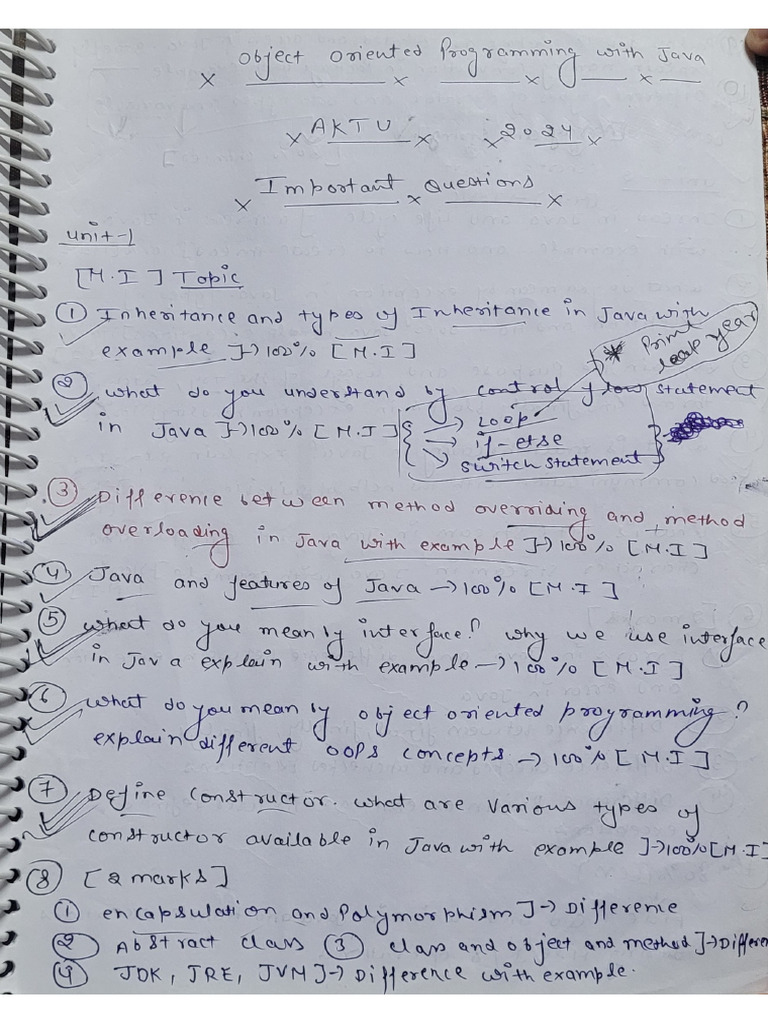 Object Oriented Programming with Java
AKTU 2024
Important Questions
unit-1
[M.I] Topic
① Inheritance and types of Inheritance in Java with
example ]→100% [M.I]
* Print
leap year
② what do you understand by control flow statement
in Java ]→100% [M.I]
→ LOOP
→ if-else
→ switch statement
③ Difference between method overriding and method
overloading in Java with example ]→100% [M.I]
④ Java and features of Java →100% [M.I]
⑤ what do you mean by interface? why we use interface
in Java explain with example →100% [M.I]
⑥ what do you mean by object oriented programming?
explain different OOPS concepts →100% [M.I]
⑦ Define constructor. what are various types of
constructor available in Java with example ]→100% [M.I]
⑧ [2 marks]
① encapsulation and Polymorphism ]→ Difference
② Abstract class ③ class and object and method ]→Differen
④ JDK, JRE, JVM ]→ Difference with example.